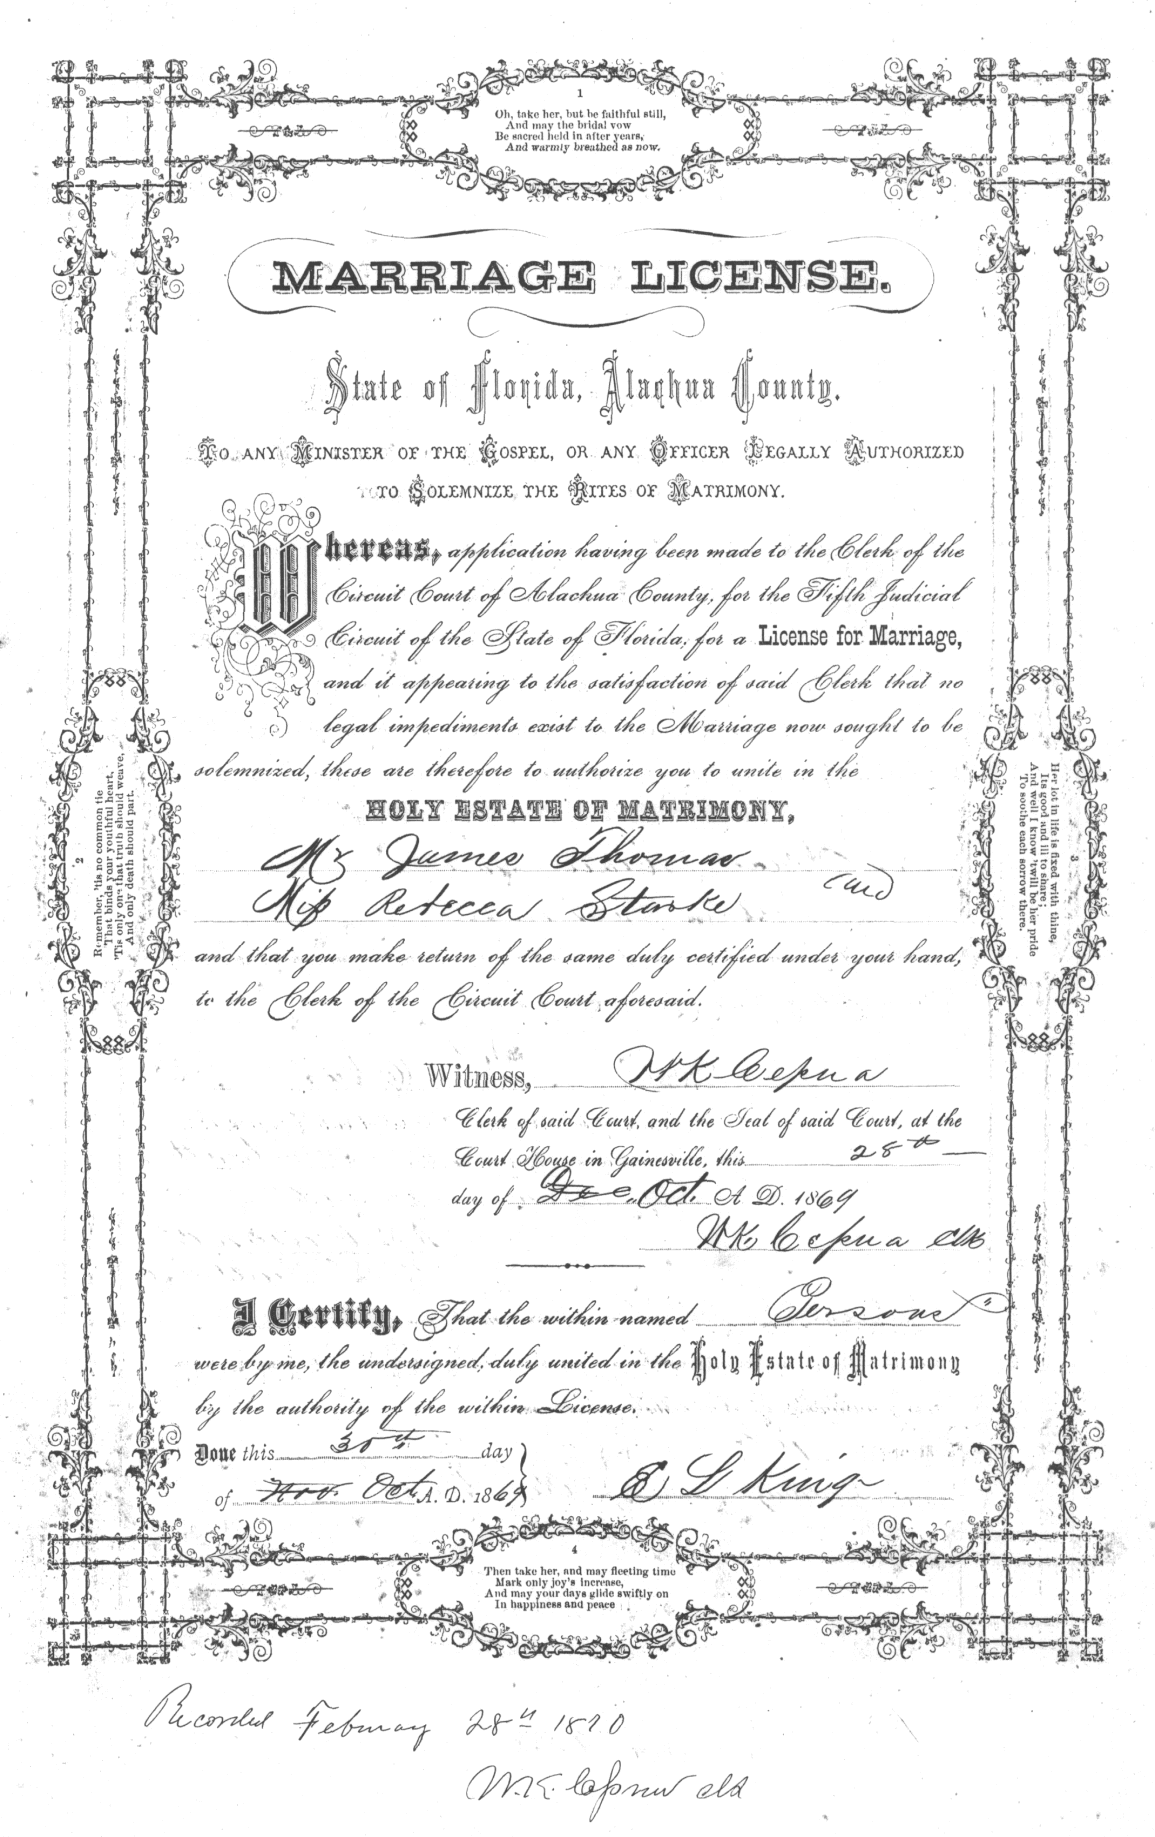 1
Oh, take her, but be faithful still,
And may the bridal vow
Be sacred held in after years,
And warmly breathed as now.
MARRIAGE LICENSE.
State of Florida, Alachua County.
TO ANY MINISTER OF THE GOSPEL, OR ANY OFFICER LEGALLY AUTHORIZED
TO SOLEMNIZE THE RITES OF MATRIMONY.
Whereas, application having been made to the Clerk of the
Circuit Court of Alachua County, for the Fifth Judicial
Circuit of the State of Florida, for a License for Marriage,
and it appearing to the satisfaction of said Clerk that no
legal impediments exist to the Marriage now sought to be
solemnized, these are therefore to authorize you to unite in the
HOLY ESTATE OF MATRIMONY,
Mr James Thomas
and
Miss Rebecca Starke
and that you make return of the same duly certified under your hand,
to the Clerk of the Circuit Court aforesaid.
Witness, W K Cessna
Clerk of said Court, and the Seal of said Court, at the
Court House in Gainesville, this 28th
day of Dec. Oct. A D. 1869
W K. Cessna Clk
I Certify, That the within named Persons
were by me, the undersigned, duly united in the Holy Estate of Matrimony
by the authority of the within License.
Done this 30th day
of Nov. Oct A. D. 1869
E L King
2
Remember, 'tis no common tie
That binds your youthful heart,
'Tis only one that truth should weave,
And only death should part.
3
Her lot in life is fixed with thine,
Its good and ill to share;
And well I know 'twill be her pride
To soothe each sorrow there.
4
Then take her, and may fleeting time
Mark only joy's increase,
And may your days glide swiftly on
In happiness and peace
Recorded February 28th 1870
W. K. Cessna Clk